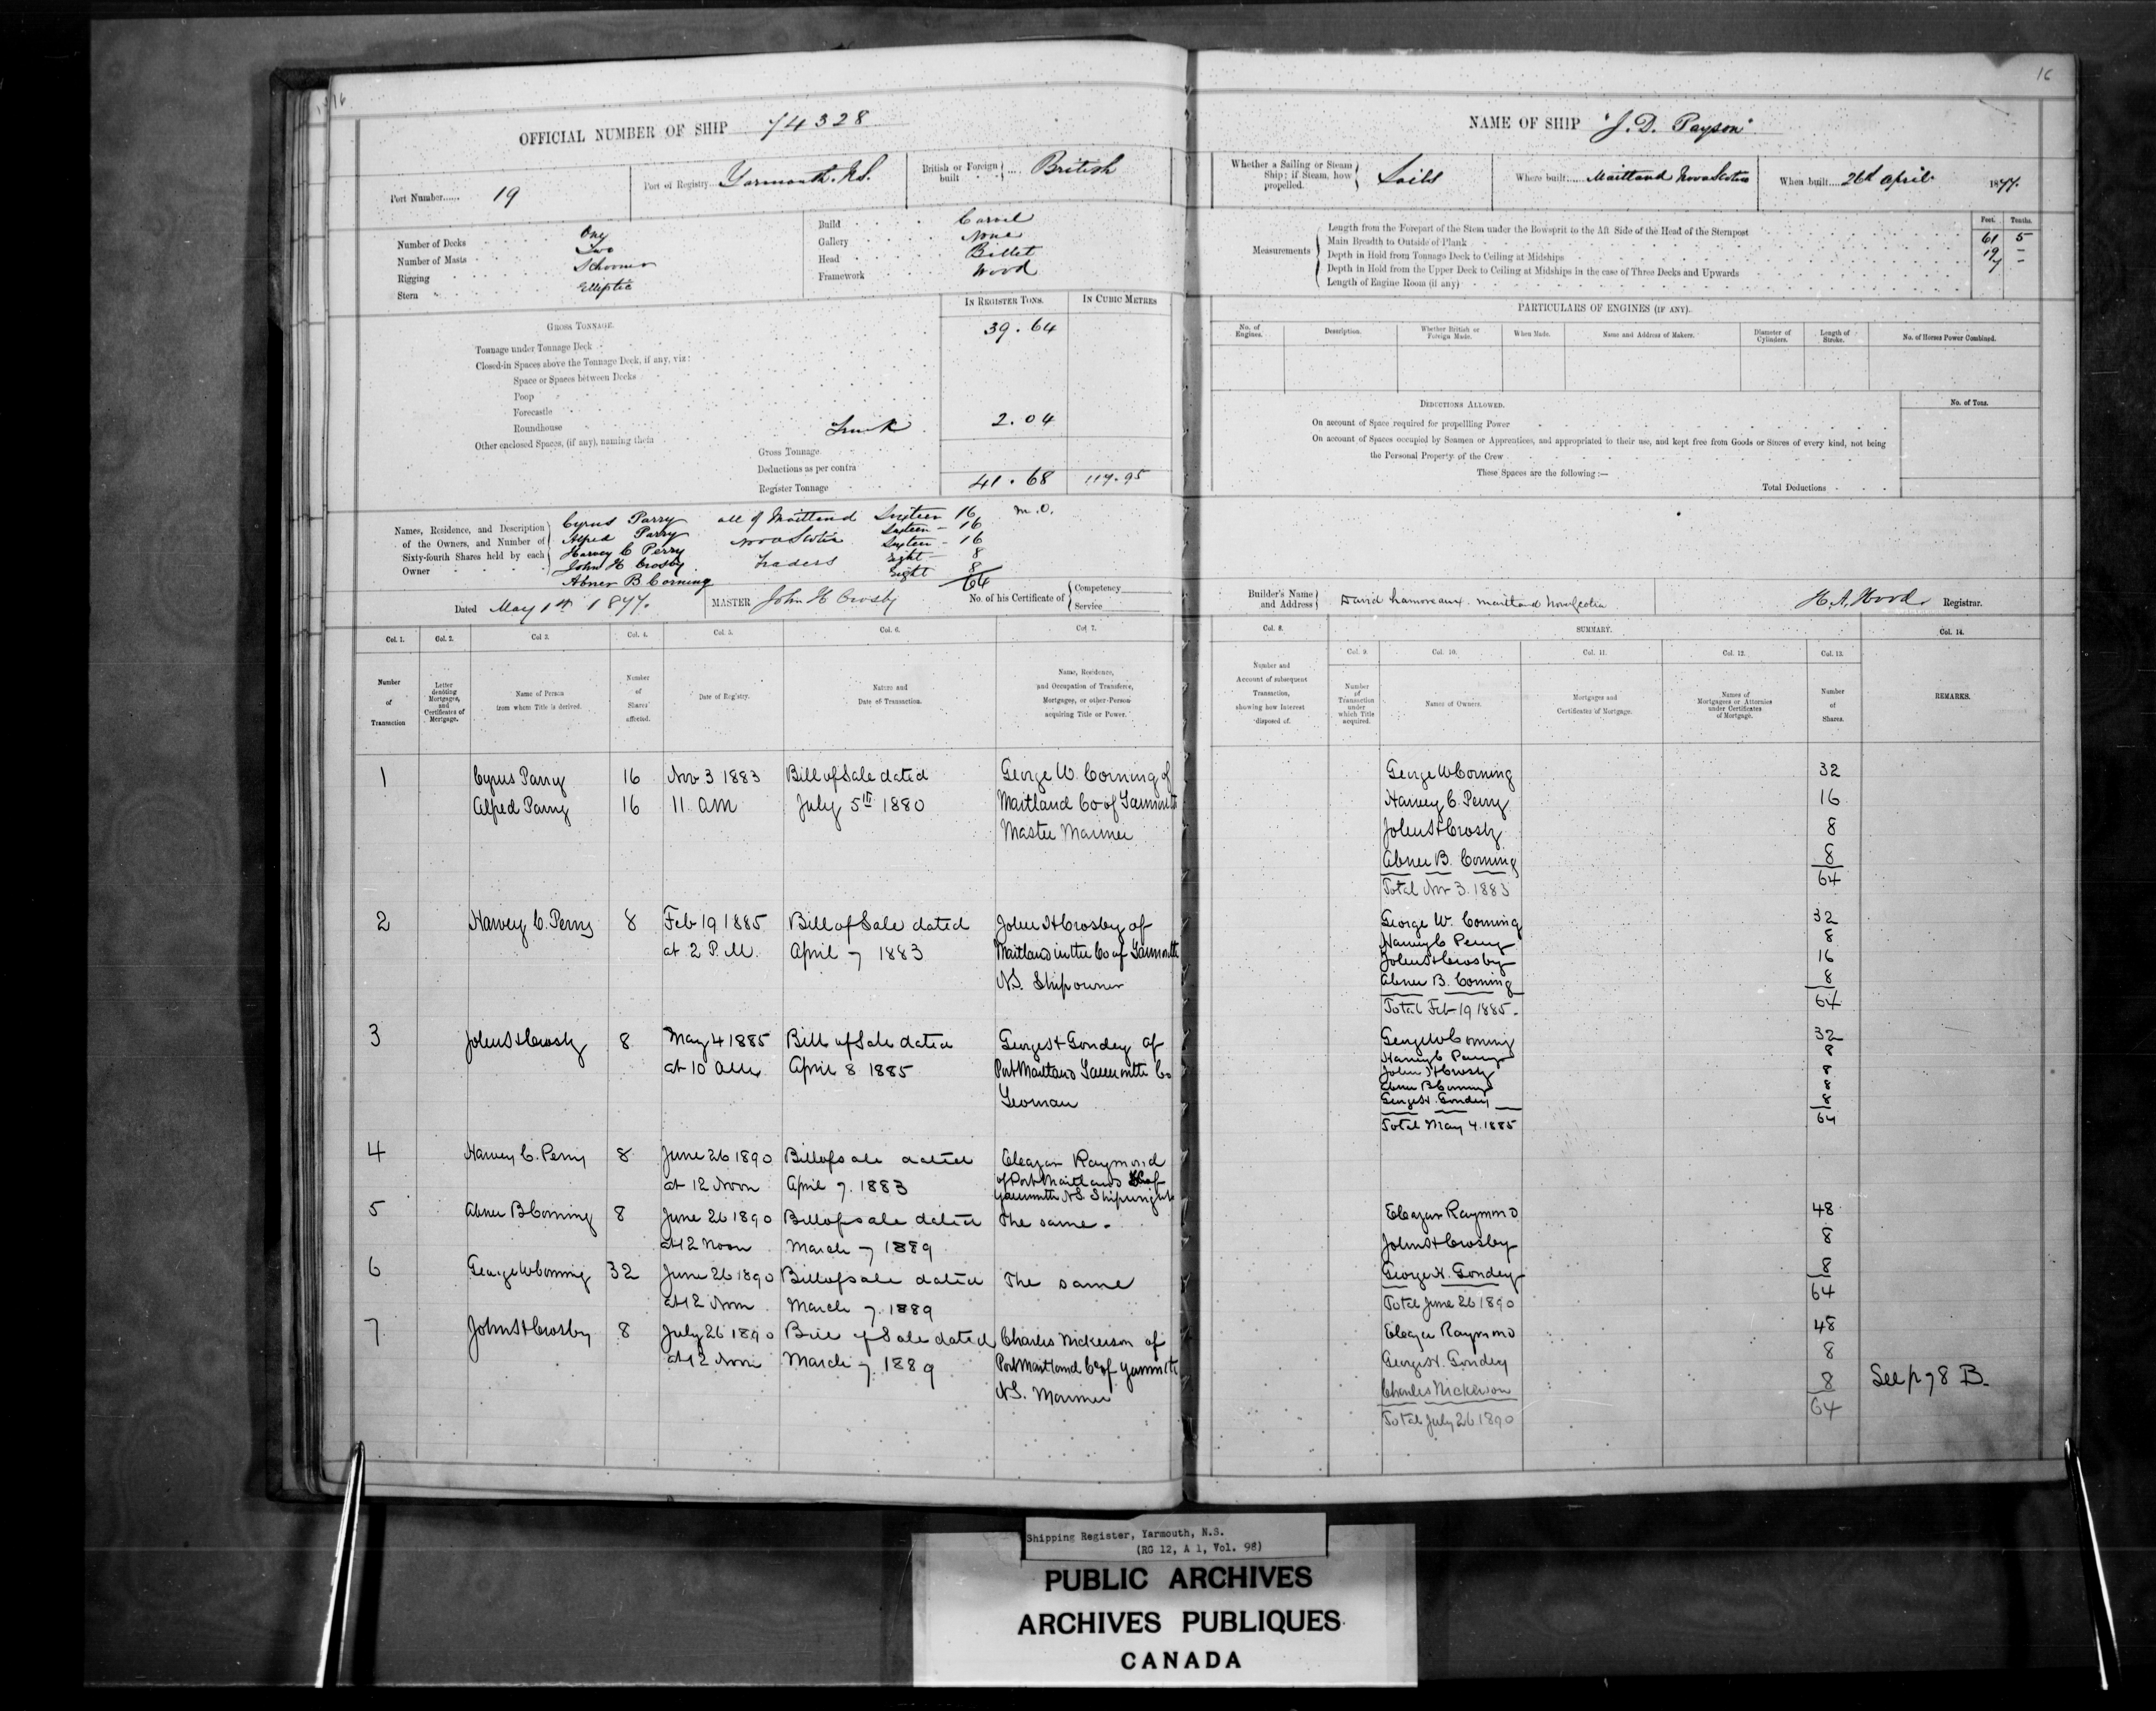 16
OFFICIAL NUMBER OF SHIP 74328
Port Number...... 19
Port of Registry... Yarmouth. N.S.
British or Foreign built .... British
Number of Decks One
Number of Masts Two
Rigging Schooner
Stern Elliptic
Build Carvel
Gallery None
Head Billet
Framework Wood
IN REGISTER TONS. IN CUBIC METRES
GROSS TONNAGE.
Tonnage under Tonnage Deck 39.64
Closed-in Spaces above the Tonnage Deck, if any, viz:
Space or Spaces between Decks
Poop
Forecastle
Roundhouse
Other enclosed Spaces, (if any), naming them Trunk 2.04
Gross Tonnage
Deductions as per contra
Register Tonnage 41.68 117.95
Names, Residence, and Description of the Owners, and Number of Sixty-fourth Shares held by each Owner
Cyrus Parry all of Maitland Sixteen 16 M.O.
Alfred Parry Nova Scotia Sixteen - 16
Harvey C Perry Sixteen - 16
John H Crosby Traders Eight - 8
Abner B Corning Eight 8
64
Dated May 1st 1877.
MASTER John H Crosby
No. of his Certificate of Competency Service
Col. 1. Col. 2. Col 3. Col. 4. Col. 5. Col. 6. Col. 7.
Number of Transaction
Letter denoting Mortgages, and Certificates of Mortgage.
Name of Person from whom Title is derived.
Number of Shares affected.
Date of Registry.
Nature and Date of Transaction.
Name, Residence, and Occupation of Transferee, Mortgagee, or other Person acquiring Title or Power.
1 Cyrus Parry 16 Nov 3 1883 Bill of Sale dated George W. Corning of
Alfred Parry 16 11 am July 5th 1880 Maitland Co of Yarmouth
Master Mariner
2 Harvey C. Perry 8 Feb 19 1885 Bill of Sale dated John H Crosby of
at 2 P.M. April 7 1883 Maitland in the Co of Yarmouth
N.S. Shipowner
3 John H Crosby 8 May 4 1885 Bill of Sale dated George H Gondey of
at 10 am April 8 1885 Port Maitland Yarmouth Co
Yeoman
4 Harvey C. Perry 8 June 26 1890 Bill of sale dated Eleazar Raymond
at 12 Noon April 7. 1883 of Port Maitland Co of
Yarmouth N.S. Shipwright
5 Abner B Corning 8 June 26 1890 Bill of sale dated The same.
at 12 Noon March 7 1889
6 George W Corning 32 June 26 1890 Bill of sale dated The same
at 12 Noon March 7. 1889
7 John H Crosby 8 July 26 1890 Bill of Sale dated Charles Nickerson of
at 12 Noon March 7. 1889 Port Maitland Co of Yarmouth
N.S. Mariner
16
NAME OF SHIP "J. D. Payson"
Whether a Sailing or Steam Ship; if Steam, how propelled. Sails
Where built...... Maitland Nova Scotia
When built.... 26th April. 1877.
Feet. Tenths.
Measurements
Length from the Forepart of the Stem under the Bowsprit to the Aft Side of the Head of the Sternpost 61 5
Main Breadth to Outside of Plank 19 -
Depth in Hold from Tonnage Deck to Ceiling at Midships 7 -
Depth in Hold from the Upper Deck to Ceiling at Midships in the case of Three Decks and Upwards
Length of Engine Room (if any)
PARTICULARS OF ENGINES (IF ANY).
No. of Engines. Description. Whether British or Foreign Made. When Made. Name and Address of Makers. Diameter of Cylinders. Length of Stroke. No. of Horses Power Combined.
DEDUCTIONS ALLOWED. No. of Tons.
On account of Space required for propelling Power
On account of Spaces occupied by Seamen or Apprentices, and appropriated to their use, and kept free from Goods or Stores of every kind, not being
the Personal Property of the Crew
These Spaces are the following:—
Total Deductions
Builder's Name and Address David Lamoreaux. Maitland Nova Scotia
H. A. Hood Registrar.
Col. 8. SUMMARY. Col. 14.
Col. 9. Col. 10. Col. 11. Col. 12. Col. 13.
Number and Account of subsequent Transaction, showing how Interest disposed of.
Number of Transaction under which Title acquired.
Names of Owners.
Mortgages and Certificates of Mortgage.
Names of Mortgagees or Attornies under Certificates of Mortgage.
Number of Shares.
REMARKS.
George W Corning 32
Harvey C. Perry 16
John H Crosby 8
Abner B. Corning 8
Total Nov 3. 1883 64
George W. Corning 32
Harvey C Perry 8
John H Crosby 16
Abner B. Corning 8
Total Feb 19 1885. 64
George W Corning 32
Harvey C Perry 8
John H Crosby 8
Abner B Corning 8
George H. Gondey 8
Total May 4. 1885 64
Eleazar Raymond 48
John H Crosby 8
George H. Gondey 8
Total June 26 1890 64
Eleazar Raymond 48
George H. Gondey 8
Charles Nickerson 8 See p 78 B.
Total July 26 1890 64
Shipping Register, Yarmouth, N.S.
(RG 12, A 1, Vol. 98)
PUBLIC ARCHIVES
ARCHIVES PUBLIQUES
CANADA